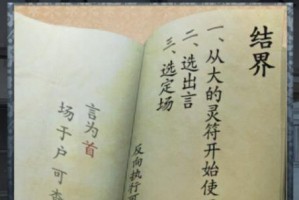 结界
一、从大的灵符开始使
二、选出言
三、选定场
反向执行可
言为首
场于户可